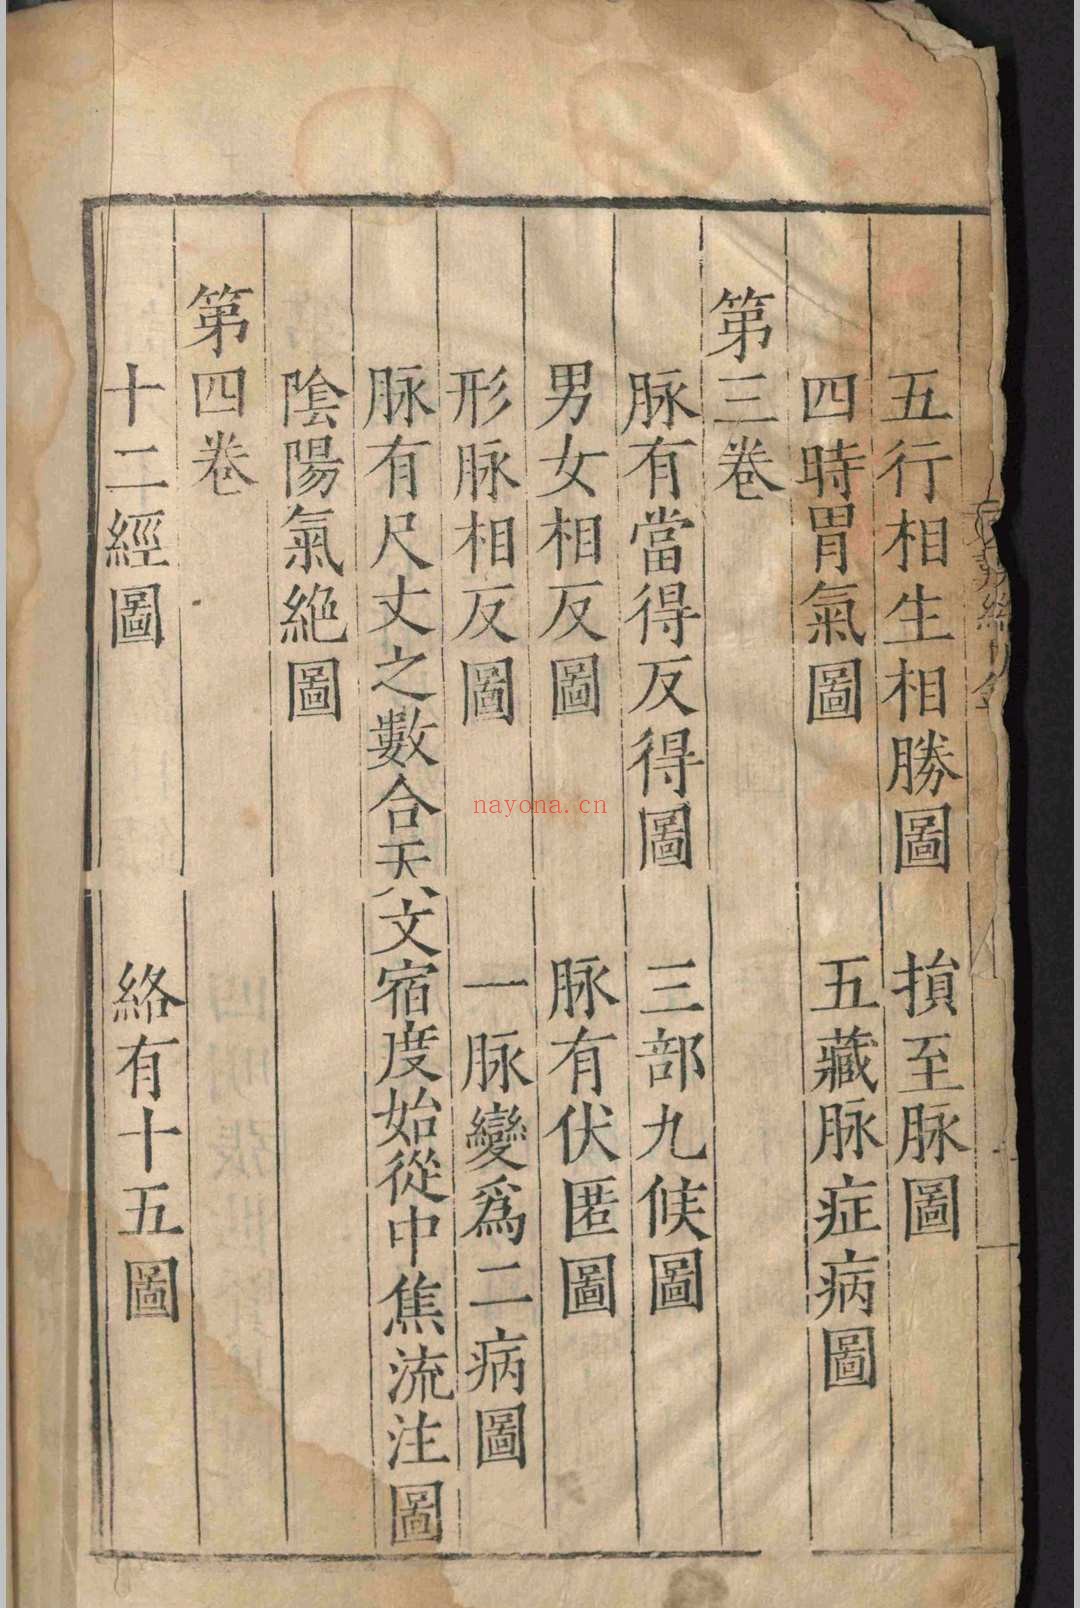 五行相生相勝圖　損至脉圖
四時胃氣圖　五藏脉症病圖
第三卷
脉有當得反得圖　三部九候圖
男女相反圖　脉有伏匿圖
形脉相反圖　一脉變爲二病圖
脉有尺丈之數合天文宿度始從中焦流注圖
陰陽氣絶圖
第四卷
十二經圖　絡有十五圖
nayona.cn